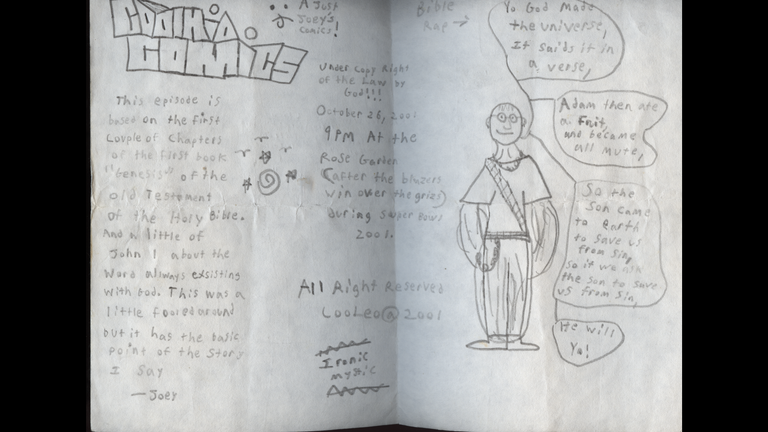 COMICS
A Just
Joey's
Comics!
This episode is
based on the first
Couple of Chapters
of the first book
"Genesis" of the
old Testament
of the Holy Bible.
And a little of
John 1 about the
Word always exsisting
with God. This was a
little fooled around
but it has the basic
point of the story
I say
—Joey
Under Copy Right
of the Law by
God!!!
October 26, 2001
9PM At the
Rose Garden
(after the blazers
win over the gries)
during super bows
2001.
All Right Reserved
LooLeo@2001
Ironic
mystic
Bible
Rap →
Yo God made
the universe,
It saids it in
a verse,
Adam then ate
a fruit,
and became
all mute,
So the
Son came
to Earth
to save us
from sin,
so if we ask
the son to save
us from sin,
He will
Yo!